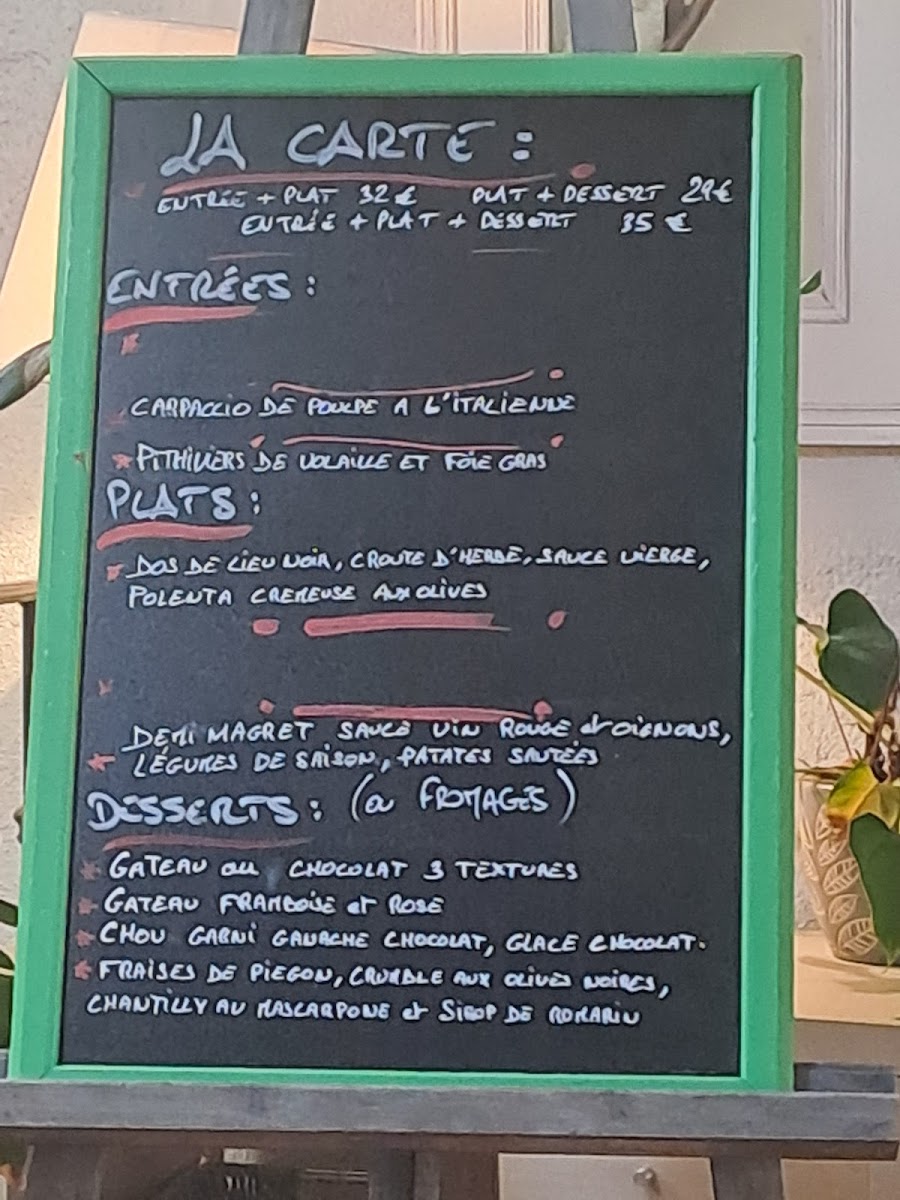 LA CARTE :
ENTRÉE + PLAT 32 € PLAT + DESSERT 29€
ENTRÉE + PLAT + DESSERT 35 €
ENTRÉES :
CARPACCIO DE POULPE A L'ITALIENNE
* PITHIVIERS DE VOLAILLE ET FOIE GRAS
PLATS :
* DOS DE LIEU NOIR, CROUTE D'HERBE, SAUCE VIERGE,
POLENTA CREMEUSE AUX OLIVES
DEMI MAGRET SAUCE VIN ROUGE et OIGNONS,
* LÉGUMES DE SAISON, PATATES SAUTÉES
DESSERTS : (ou FROMAGES)
* GATEAU au CHOCOLAT 3 TEXTURES
* GATEAU FRAMBOISE et ROSE
* CHOU GARNI GANACHE CHOCOLAT, GLACE CHOCOLAT.
* FRAISES DE PIEGON, CRUMBLE AUX OLIVES NOIRES,
CHANTILLY AU MASCARPONE et SIROP DE ROMARIN